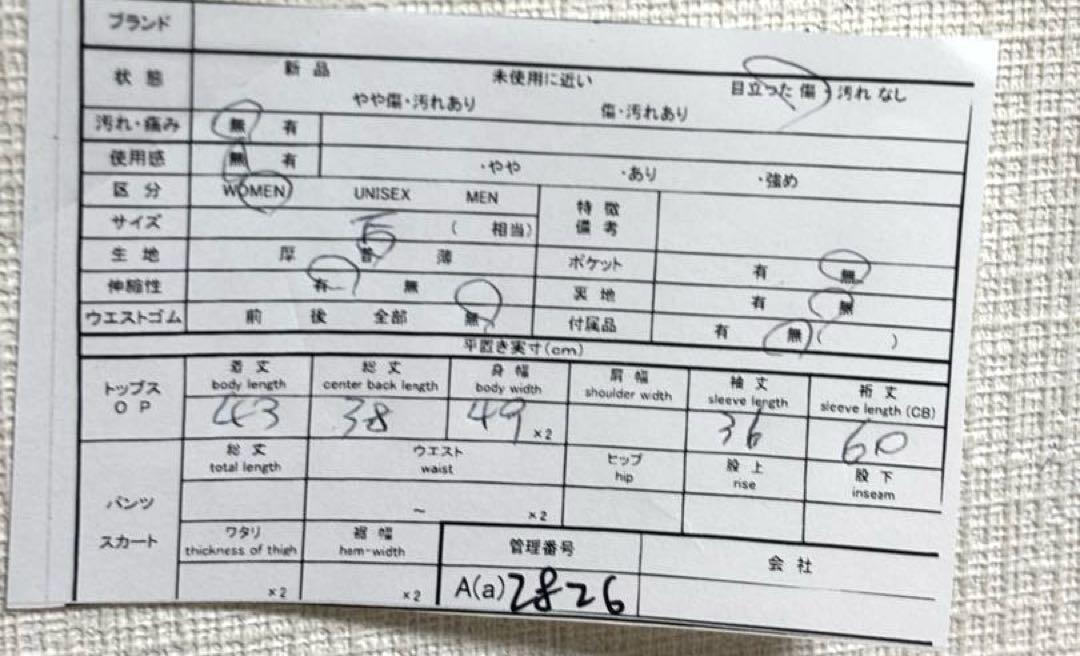 ブランド
状態 新品 未使用に近い 目立った傷・汚れなし
やや傷・汚れあり 傷・汚れあり
汚れ・痛み 無 有
使用感 無 有 ・やや ・あり ・強め
区分 WOMEN UNISEX MEN 特徴
備考
サイズ ( 相当)
生地 厚 普 薄 ポケット 有 無
伸縮性 有 無 裏地 有 無
ウエストゴム 前 後 全部 無 付属品 有 無 ( )
平置き実寸(cm)
トップス
OP
着丈 総丈 身幅 肩幅 袖丈 裄丈
body length center back length body width shoulder width sleeve length sleeve length (CB)
43 38 49 ×2 36 60
パンツ
スカート
総丈 ウエスト ヒップ 股上 股下
total length waist hip rise inseam
~ ×2
ワタリ 裾幅 管理番号 会社
thickness of thigh hem-width
×2 ×2 A(a) 2826